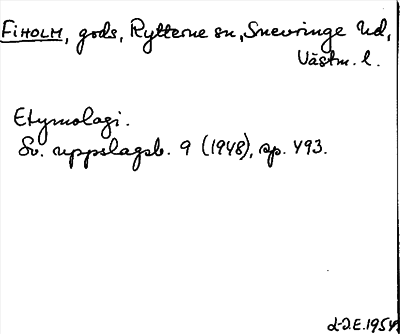 FIHOLM, gods, Rytterne sn, Snevringe hd,
Västm. l.
Etymologi.
Sv. uppslagsb. 9 (1948), sp. 493.
1954